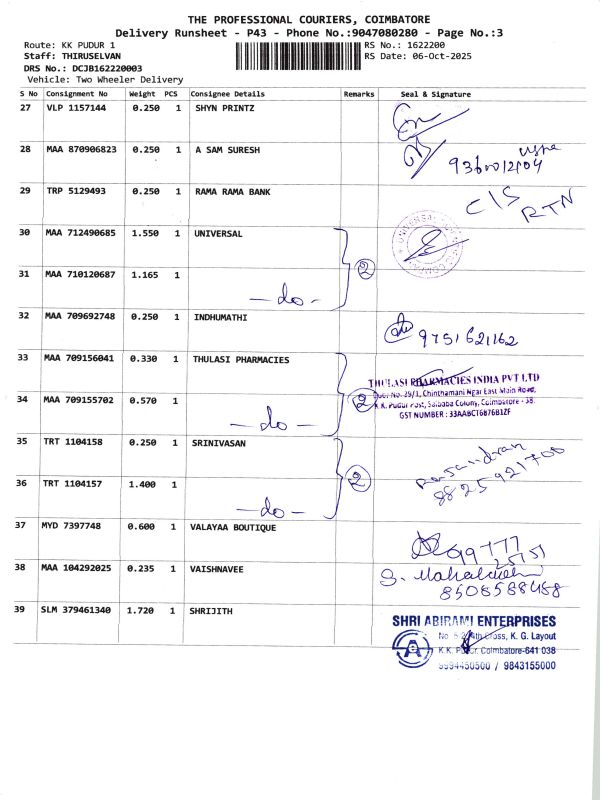 THE PROFESSIONAL COURIERS, COIMBATORE
Delivery Runsheet - P43 - Phone No.:9047080280 - Page No.:3
Route: KK PUDUR 1
Staff: THIRUSELVAN
DRS No.: DCJB162220003
Vehicle: Two Wheeler Delivery
RS No.: 1622200
RS Date: 06-Oct-2025
S No Consignment No Weight PCS Consignee Details Remarks Seal & Signature
27 VLP 1157144 0.250 1 SHYN PRINTZ
28 MAA 870906823 0.250 1 A SAM SURESH
29 TRP 5129493 0.250 1 RAMA RAMA BANK C/S RTN
30 MAA 712490685 1.550 1 UNIVERSAL 2
31 MAA 710120687 1.165 1
- do -
32 MAA 709692748 0.250 1 INDHUMATHI 9751621162
33 MAA 709156041 0.330 1 THULASI PHARMACIES
THULASI PHARMACIES INDIA PVT LTD
Door No. 29/1, Chinthamani Ngar East Main Road,
K.K. Pudur Post, Saiboba Colony, Coimbatore - 38.
GST NUMBER : 33AABCT6876B1ZF
34 MAA 709155702 0.570 1 2
- do -
35 TRT 1104158 0.250 1 SRINIVASAN
8825921700
36 TRT 1104157 1.400 1 2
- do -
37 MYD 7397748 0.600 1 VALAYAA BOUTIQUE
38 MAA 104292025 0.235 1 VAISHNAVEE
8508588488
39 SLM 379461340 1.720 1 SHRIJITH
SHRI ABIRAMI ENTERPRISES
Cross, K. G. Layout
Coimbatore-641 038
9994450500 / 9843155000